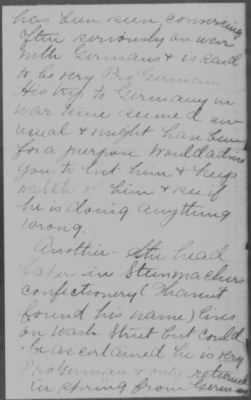 has been seen conversing
often seriously on war
with Germans & is said
to be very Pro German
His trip to Germany in
war time seemed un-
usual & might have been
for a purpose. Would advise
you to list him & keep
watch of him & see if
he is doing anything
wrong.
Another - the head
baker in Steinmachers
confectionery (I havent
found his name) lives
on Wash. Street but could
be ascertained he is very
ProGerman & only returned
in spring from Germany